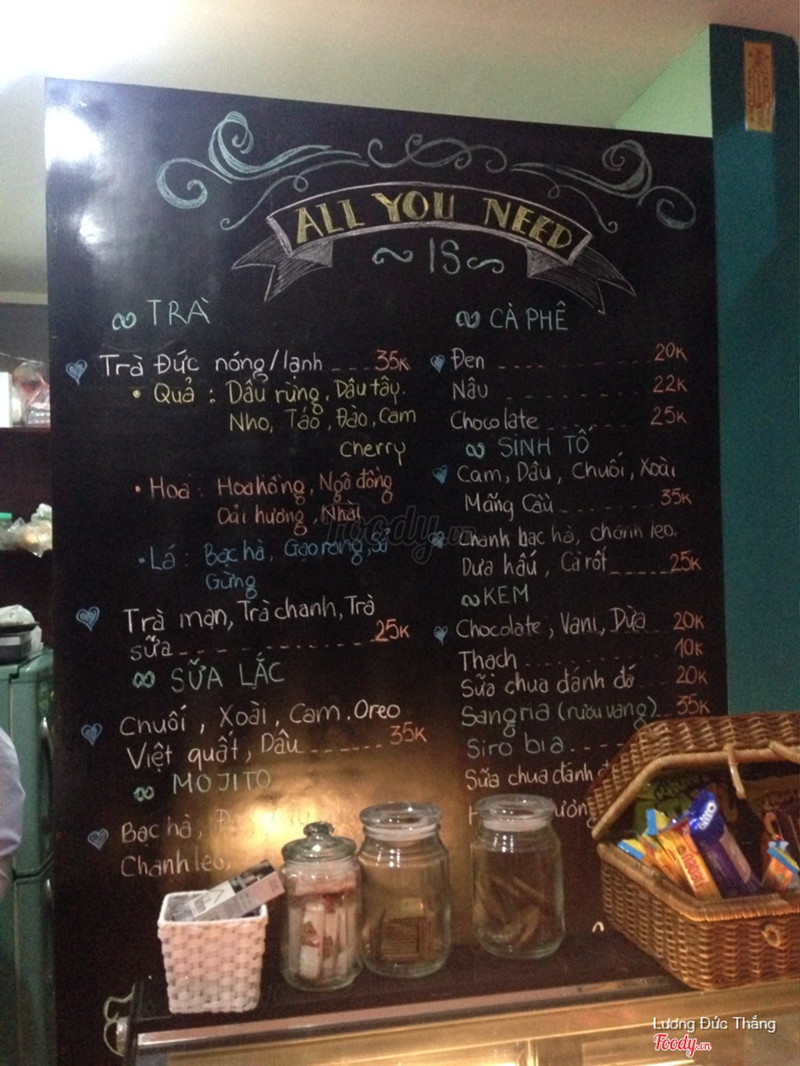 ALL YOU NEED
IS
TRÀ
Trà Đức nóng/lạnh 35K
• Quả : Dâu rừng, Dâu tây,
Nho, Táo, Đào, Cam
Cherry
• Hoa : Hoa hồng, Ngô đồng
Oải hương, Nhài
• Lá : Bạc hà, Gạo rang, Sả
Gừng
Trà mạn, Trà chanh, Trà
sữa 25K
SỮA LẮC
Chuối, Xoài, Cam, Oreo
Việt quất, Dâu 35K
MOJITO
Bạc hà,
Chanh leo,
CÀ PHÊ
Đen 20K
Nâu 22K
Chocolate 25K
SINH TỐ
Cam, Dâu, Chuối, Xoài
Mãng Cầu 35K
Chanh bạc hà, chanh leo,
Dưa hấu, Cà rốt 25K
KEM
Chocolate, Vani, Dừa 20K
Thạch 10K
Sữa chua đánh đá 20K
Sangria (rượu vang) 35K
Siro bia
Sữa chua đánh
Foody.vn
OREO
Lương Đức Thắng
Foody.vn